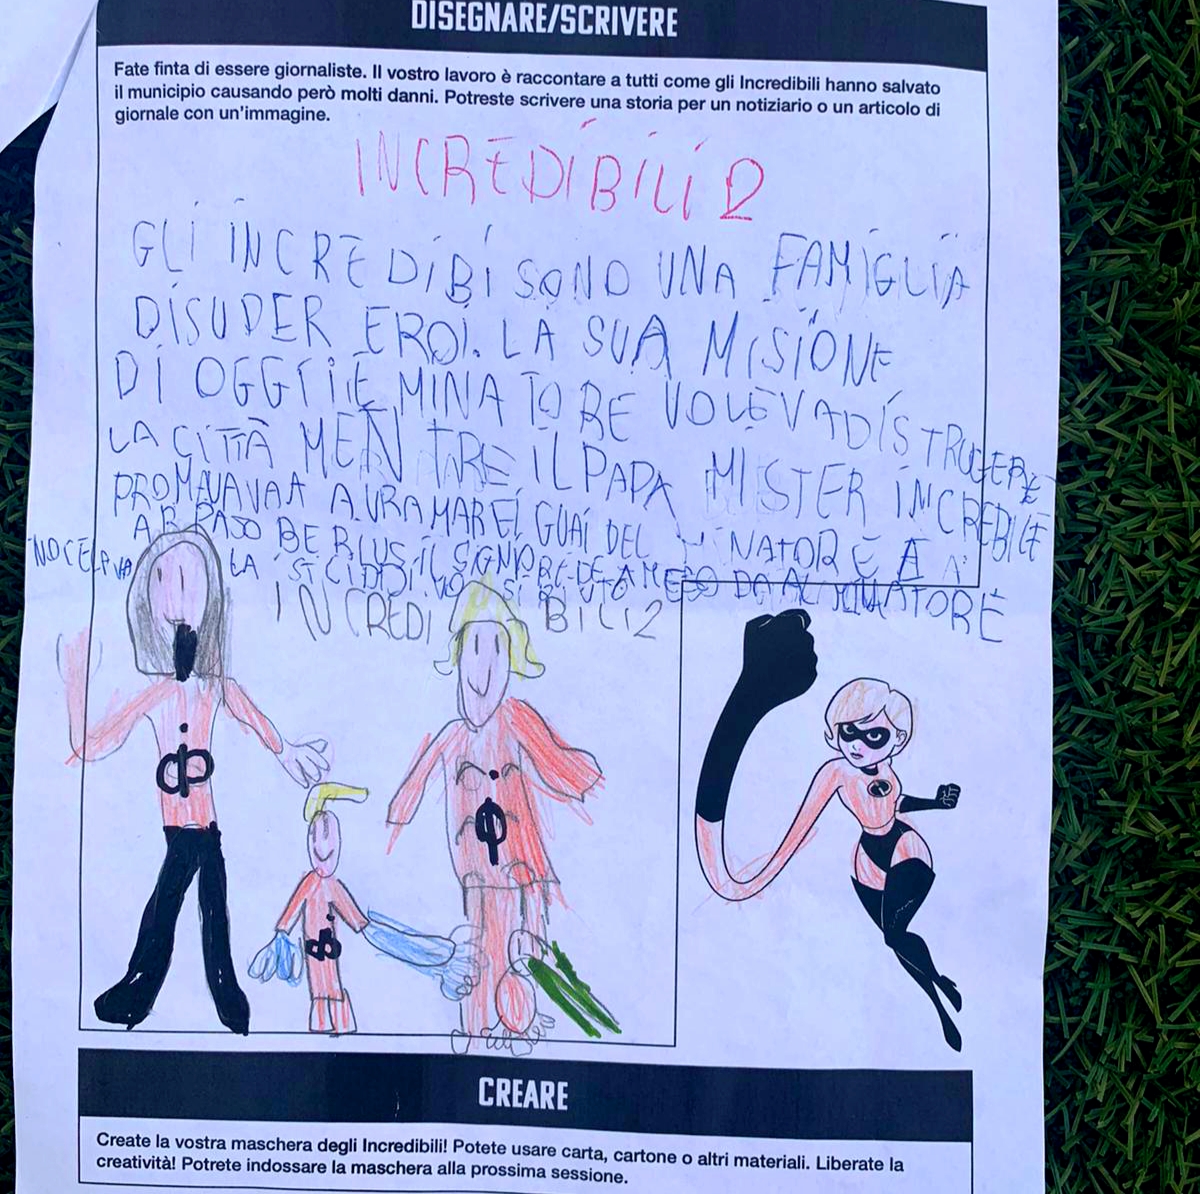 DISEGNARE/SCRIVERE
Fate finta di essere giornaliste. Il vostro lavoro è raccontare a tutti come gli Incredibili hanno salvato
il municipio causando però molti danni. Potreste scrivere una storia per un notiziario o un articolo di
giornale con un'immagine.
INCREDIBILI 2
GLI INCREDIBI SONO UNA FAMIGLIA
DISUPER EROI. LA SUA MISIONE
DI OGGI È MINATORE VOLEVA DISTRUGERE
LA CITTÀ MENTRE IL PAPA MISTER INCREDIBILE
GUAI DEL MINATORE
IL SIGNORE DA AL MINATORE
INCREDIBILI 2
CREARE
Create la vostra maschera degli Incredibili! Potete usare carta, cartone o altri materiali. Liberate la
creatività! Potrete indossare la maschera alla prossima sessione.